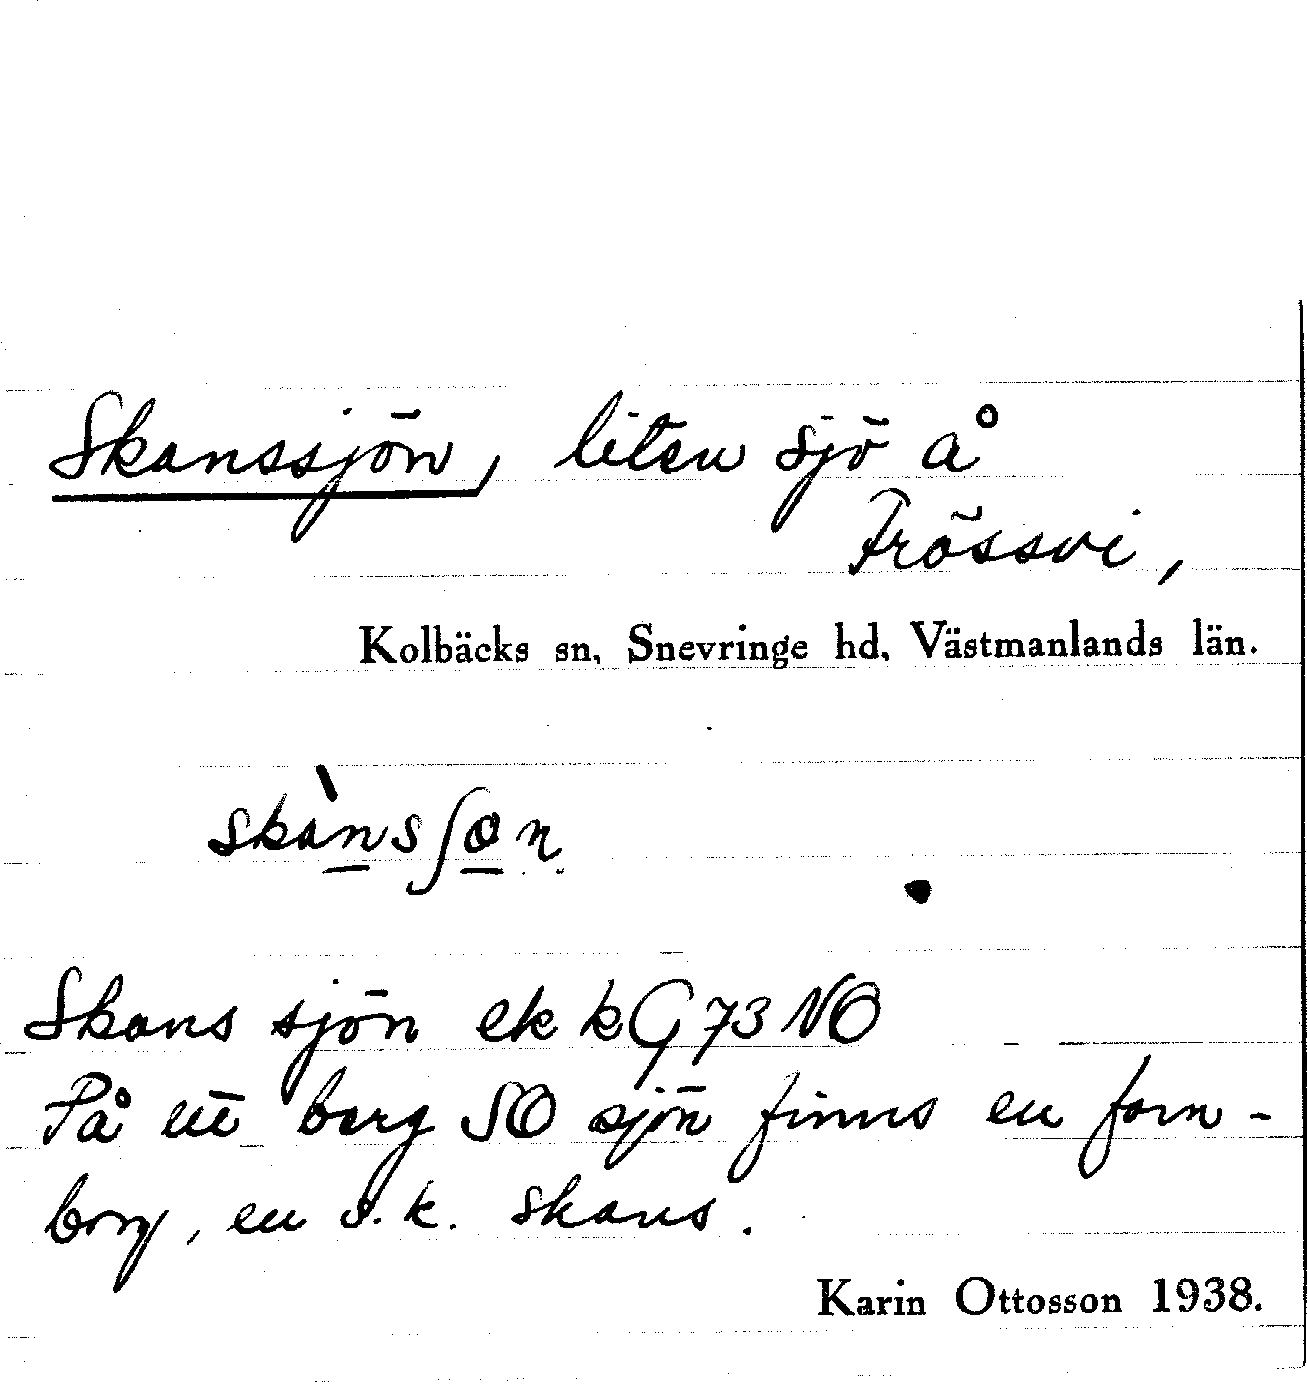 Skanssjön, liten sjö å
Frössvi,
Kolbäcks sn, Snevringe hd, Västmanlands län.
skànsʃön
Skans sjön ek k G 73 NO
På ett berg SO sjön finns en forn-
borg, en s.k. skans.
Karin Ottosson 1938.